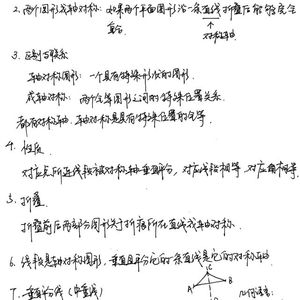 2. 两个图形成轴对称: 如果两个平面图形沿一条直线折叠后能够完全
重合.
对称轴
3. 区别与联系
轴对称图形: 一个具有特殊形状的图形.
成轴对称: 两个全等图形之间的特殊位置关系.
都有对称轴. 轴对称是具有特殊位置的全等.
4. 性质
对应点所连线段被对称轴垂直平分, 对应线段相等, 对应角相等
5. 折叠
折叠前后两部分图形关于折痕所在直线成轴对称.
6. 线段是轴对称图形, 垂直且平分它的一条直线是它的对称轴.
7. 垂直平分线 (中垂线)
C
A
B
几何语言: